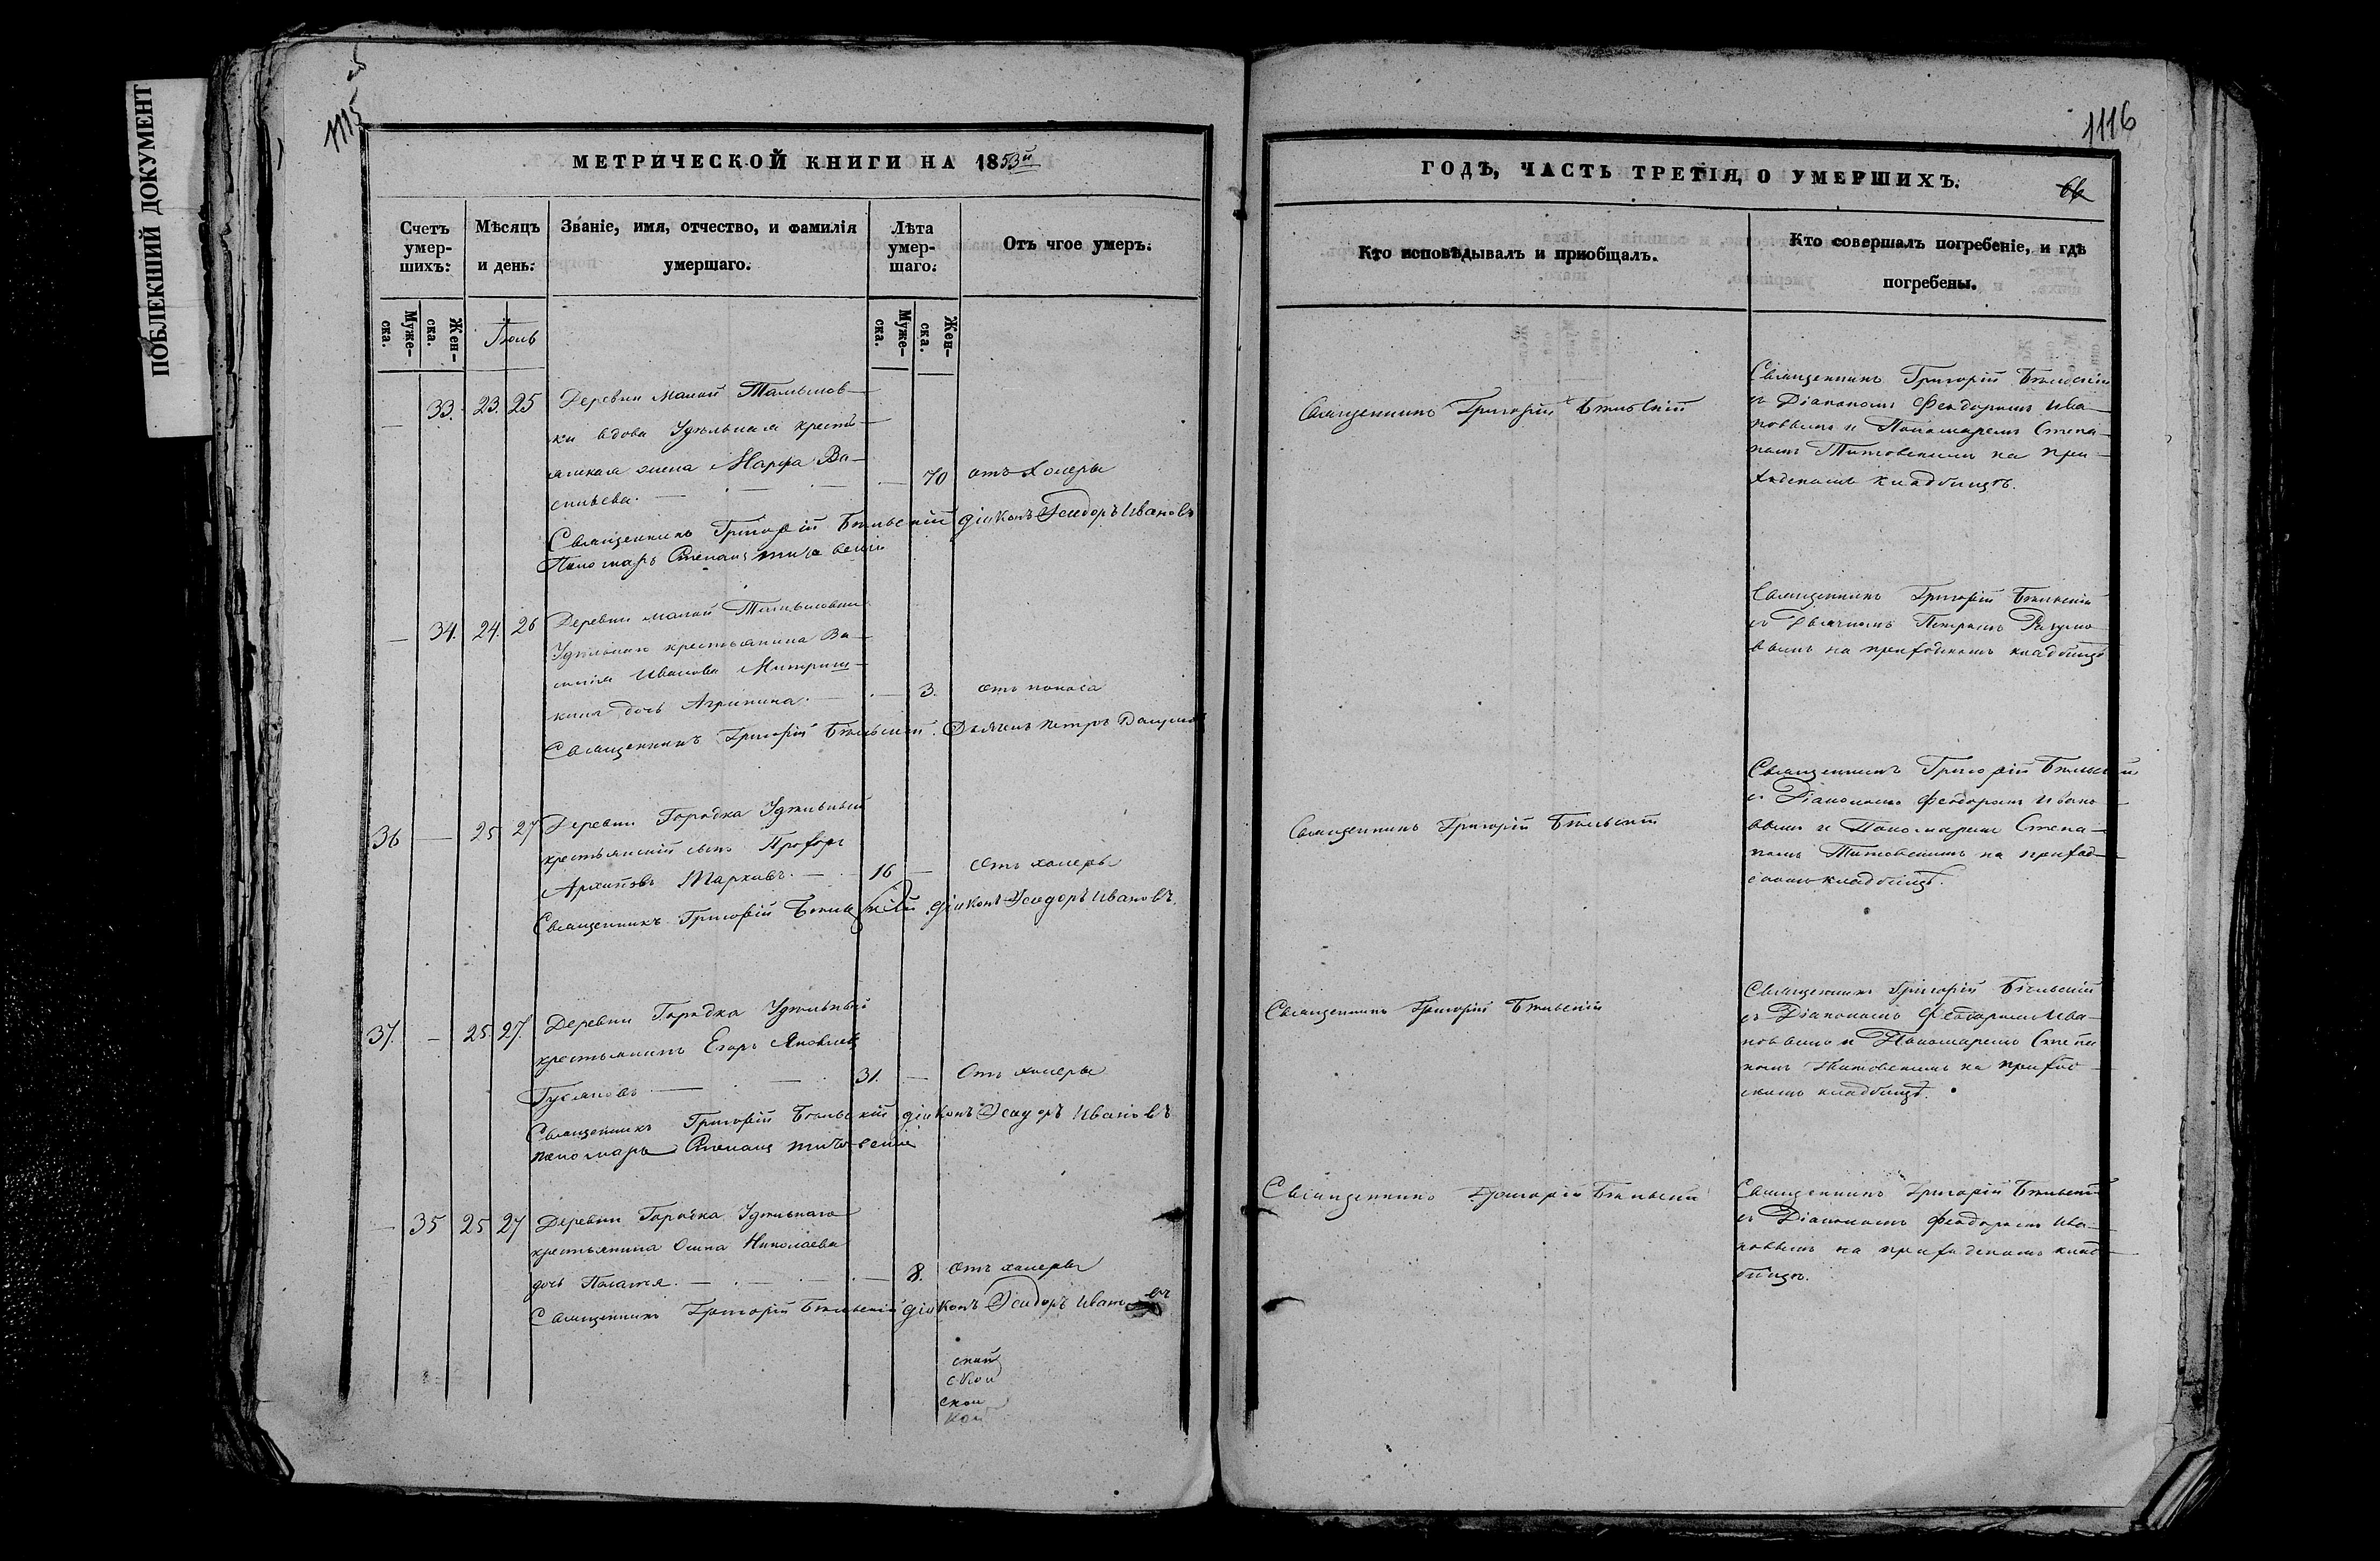 ПОБЛЕКШИЙ ДОКУМЕНТ
1115
МЕТРИЧЕСКОЙ КНИГИ НА 1853й
Счетъ умер-шихъ:
Мѣсяцъ и день:
Званіе, имя, отчество, и фамилія умершаго.
Лѣта умер-шаго:
Отъ чгое умеръ:
Муже-ска.
Жен-ска.
Іюль
Муже-ска.
Жен-ска.
33. 23. 25 Деревни Малой
ки вдова Удѣльная крестъ-
янская жена Марфа Ва-
сильева. 70 отъ Холеры
Священникъ Григорій Бѣльскій діаконъ Ѳеодоръ Ивановъ
Пономарь Степанъ Титовскій
34. 24. 26 Деревни малой
Удѣльнаго крестьянина Ва-
силія Иванова
дочь Агрипина. 3. отъ поноса
Священникъ Григорій Бѣльскій. Дьячекъ Петръ
36 25 27 Деревни Городка Удѣльный
крестьянскій сынъ Прохоръ
Архиповъ Марковъ. 16 Отъ холеры
Священникъ Григорій Бѣльскій діаконъ Ѳеодоръ Ивановъ.
37. 25. 27. Деревни Городка Удѣльный
крестьянинъ Егоръ Яковлевъ
31. Отъ холеры
Священникъ Григорій Бѣльскій діаконъ Ѳеодоръ Ивановъ
пономарь Степанъ Титовскій
35 25 27 Деревни Городка Удѣльнаго
крестьянина Осипа Николаева
дочь Палагея. 8. отъ холеры
Священникъ Григорій Бѣльскій діаконъ Ѳеодоръ Ивановъ
ской
ской
ской
кой
1116
ГОДЪ, ЧАСТЬ ТРЕТІЯ, О УМЕРШИХЪ.
66
Кто исповѣдывалъ и пріобщалъ.
Кто совершалъ погребеніе, и гдѣ погребены.
Священникъ Григорій Бѣльскій
Священникъ Григорій Бѣльскій
съ Діакономъ Феодоромъ Ива-
новымъ и Пономаремъ Степа-
номъ Титовскимъ на при-
ходскомъ кладбищѣ.
Священникъ Григорій Бѣльскій
съ Дьячкомъ Петромъ Разумо-
вымъ на приходскомъ кладбищѣ
Священникъ Григорій Бѣльскій
Священникъ Григорій Бѣльскій
съ Діакономъ Феодоромъ Ивано-
вымъ и Пономаремъ Степа-
номъ Титовскимъ на приход-
скомъ кладбищѣ.
Священникъ Григорій Бѣльскій
Священникъ Григорій Бѣльскій
съ Діакономъ Феодоромъ Ива-
новымъ и Пономаремъ Степа
номъ Титовскимъ на приход-
скомъ кладбищѣ.
Священникъ Григорій Бѣльскій
Священникъ Григорій Бѣльскій
съ Діакономъ Феодоромъ Ива-
новымъ на приходскомъ клад-
бищѣ.